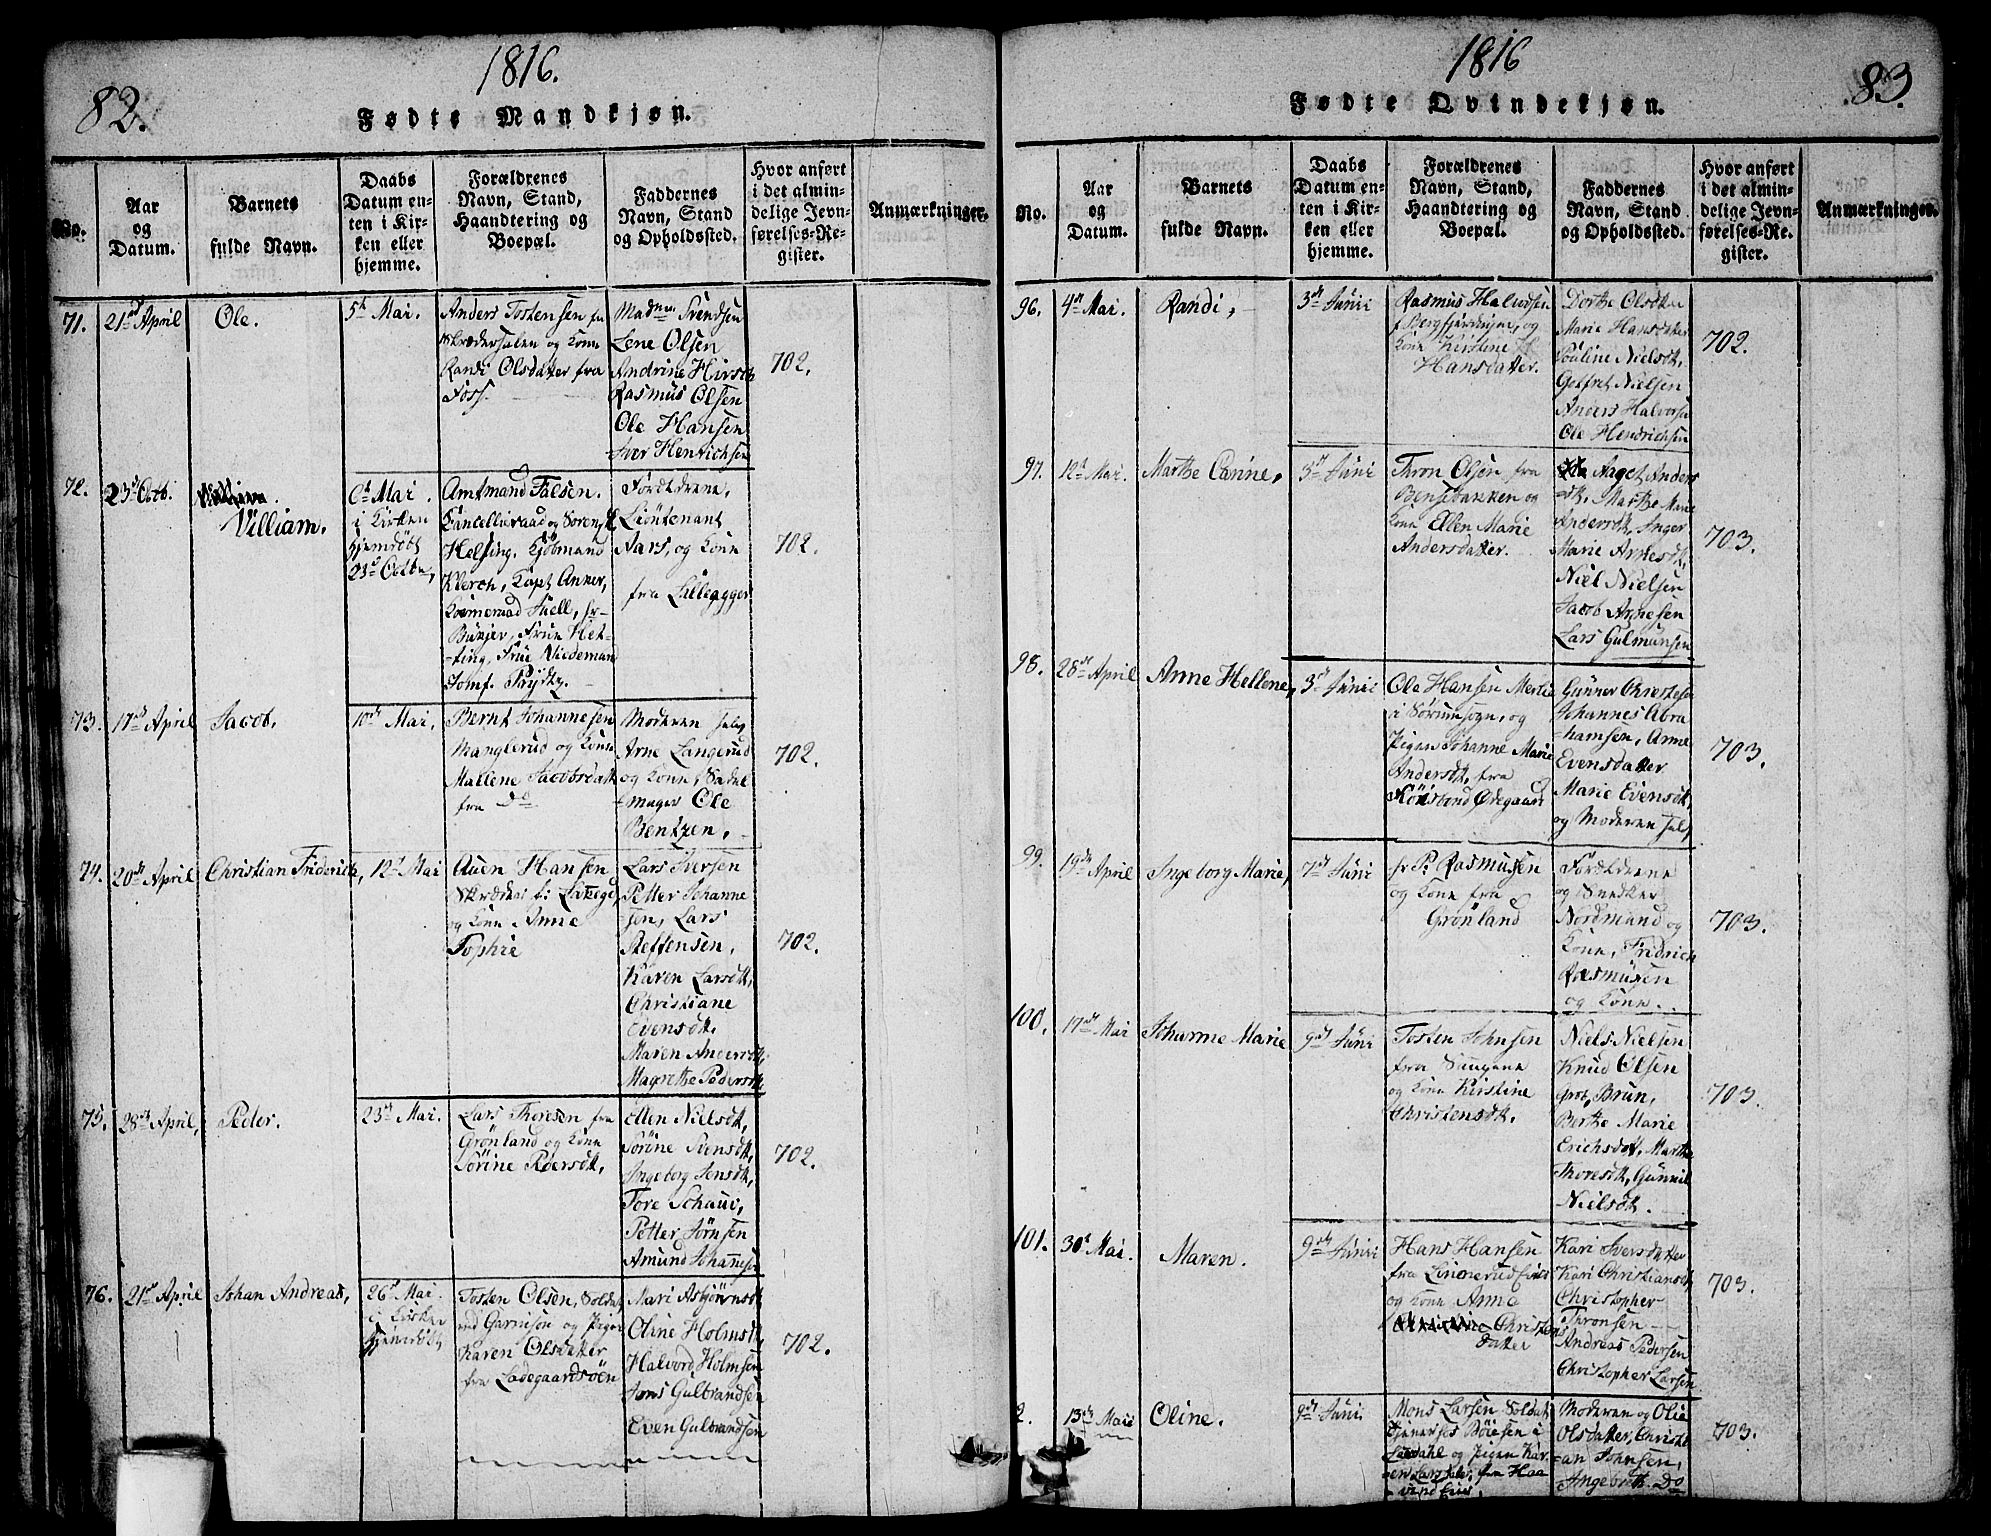 1816.
82.
Fødte Mandkjøn.
No.
Aar
og
Datum.
Barnets
fulde Navn.
Daabs
Datum en-
ten i Kir-
ken eller
hjemme.
Forældrenes
Navn, Stand,
Haandtering og
Boepæl.
Faddernes
Navn, Stand
og Opholdssted.
Hvor anført
i det almin-
delige Jevn-
førelses-Re-
gister.
Anmærkninger.
71.
21de April
Ole.
5t Mai.
Anders Tostensen fra
og Kone
Randi Olsdatter fra
Foss.
Madme Svendsen
Lene Olsen
Andrine Hirsch
Rasmus Olsen
Ole Hansen
Iver Henrichsen
702.
72.
23d Octb.
Villiam.
6t Mai.
i Kirken
hjemdøbt
23d Octbr,
Amtmand Falsen.
Cancelliraad og Sorenskr
Helsing, Kjøbmand
Klerch, Capt Anker,
Tuell, hr
Bunjer, Frue Het-
ting, Frue Viedemand
Jomf. Prydtz.
Forældrene,
Lieutenant
Aars, og Kone
fra Lilleagger
702.
73.
17de April
Jacob.
10de Mai,
Bernt Johannesen
Manglerud og Kone
Mallene Jacobsdatt
fra Do
Moderen selv
Arne Langerud
og Kone, Sadel
mager Ole
Bentzen,
702.
74.
20de April
Christian Friderich,
12t Mai
Auen Hansen
Skræder i Lakegd,
og Kone Anne
Sophie
Lars Iversen
Petter Johanne
sen, Lars
Steffensen,
Karen Larsdt,
Christiane
Evensdt.
Maren Andersdt,
Magrethe Pedersdt
702.
75.
28de April,
Peder.
23de Mai.
Lars Thoresen fra
Grønland og Kone
Sørine Pedersdt,
Ellen Nielsdt,
Sørine Svensdt,
Ingeborg Jensdt,
Tore Schaui,
Petter Jørnsen
Amund Johannesen
702.
76.
21de April
Johan Andreas,
26de Mai.
i Kirken
hjemdøbt,
Tosten Olsen, Soldat
ved Garnison og Pigen
Karen Olsdatter
fra Ladegaardsøen
Mari Asbjørnsdt,
Oline Holmsdt,
Halvord Holmsen
Jens Gulbrandsen
Even Gulbrandsen
702.
1816
83.
Fødte Qvindekjøn.
No.
Aar
og
Datum.
Barnets
fulde Navn.
Daabs
Datum en-
ten i Kir-
ken eller
hjemme.
Forældrenes
Navn, Stand,
Haandtering og
Boepæl.
Faddernes
Navn, Stand
og Opholdssted.
Hvor anført
i det almin-
delige Jevn-
førelses-Re-
gister.
Anmærkninger.
96.
4de Mai.
Randi,
3de Juni
Rasmus Halvorsen
f Bergfjerdingen, og
Kone Kirstine
Hansdatter.
Dorthe Olsdatter
Marie Hansdatter
Pouline Nielsdt,
Gotfret Nielsen
Anders Halvorsen
Ole Hendrichsen
702.
97.
12t Mai.
Marthe Carine,
3de Juni
Thron Olsen fra
Bensebakken og
Kone Ellen Marie
Andersdatter.
Aaget Anders
dt. Marthe Marie
Andersdt, Inger
Marie Arnesdt,
Niel Nielsen
Jacob Arnesen
Lars Gulmunsen
703.
98.
28de April
Anne Hellene,
3de Juni
Ole Hansen
i Sørumsogn, og
Pigen Johanne Marie
Andersdt, fra
Ødegaard
Gunner Christesen
Johannes Abra
hamsen, Anne
Evensdatter
Marie Evensdt,
og Moderen selv
703.
99.
19de April
Ingeborg Marie,
7de Juni
hr P. Rasmusen
og Kone fra
Grønland
Forældrene
og Snedker
Nordmand og
Kone, Fridrich
Rasmusen
og Kone.
703.
100.
17de Mai
Johanne Marie
9de Juni
Tosten Johnsen
fra Saugene
og Kone Kirstine
Christensdt.
Niels Nielsen
Knud Olsen
Grot, Brun,
Berthe Marie
Erichsdatt, Marthe
Thoresdt, Gunnil
Nielsdt.
703.
101.
30t Mai.
Maren.
9de Juni
Hans Hansen
fra Linnerud Eier
og Kone Anna
Christens
datter
Kari Iversdatter
Kari Christiansdt,
Christopher
Thronsen
Andreas Pedersen
Christopher Larsen
703.
2.
13de Mai
Oline.
9de Juni
Mons Larsen Soldat
tjener hos Boiesen i
og Pigen Kar
en Larsdatter, fra Haa
Moderen og Olia
Olsdatter, Christi
an Johnsen,
Ingebreth. Do
703.